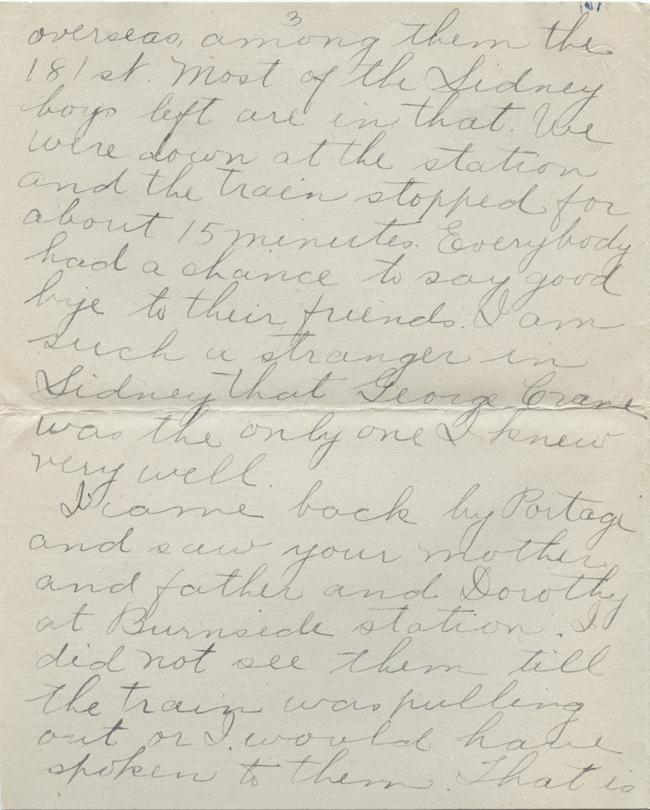 3
overseas, among them the
181st. Most of the Sidney
boys left are in that. We
were down at the station
and the train stopped for
about 15 minutes. Everybody
had a chance to say good
bye to their friends. I am
such a stranger in
Sidney that George Crane
was the only one I knew
very well.
I came back by Portage
and saw your mother
and father and Dorothy
at Burnside station. I
did not see them till
the train was pulling
out or I would have
spoken to them. That is